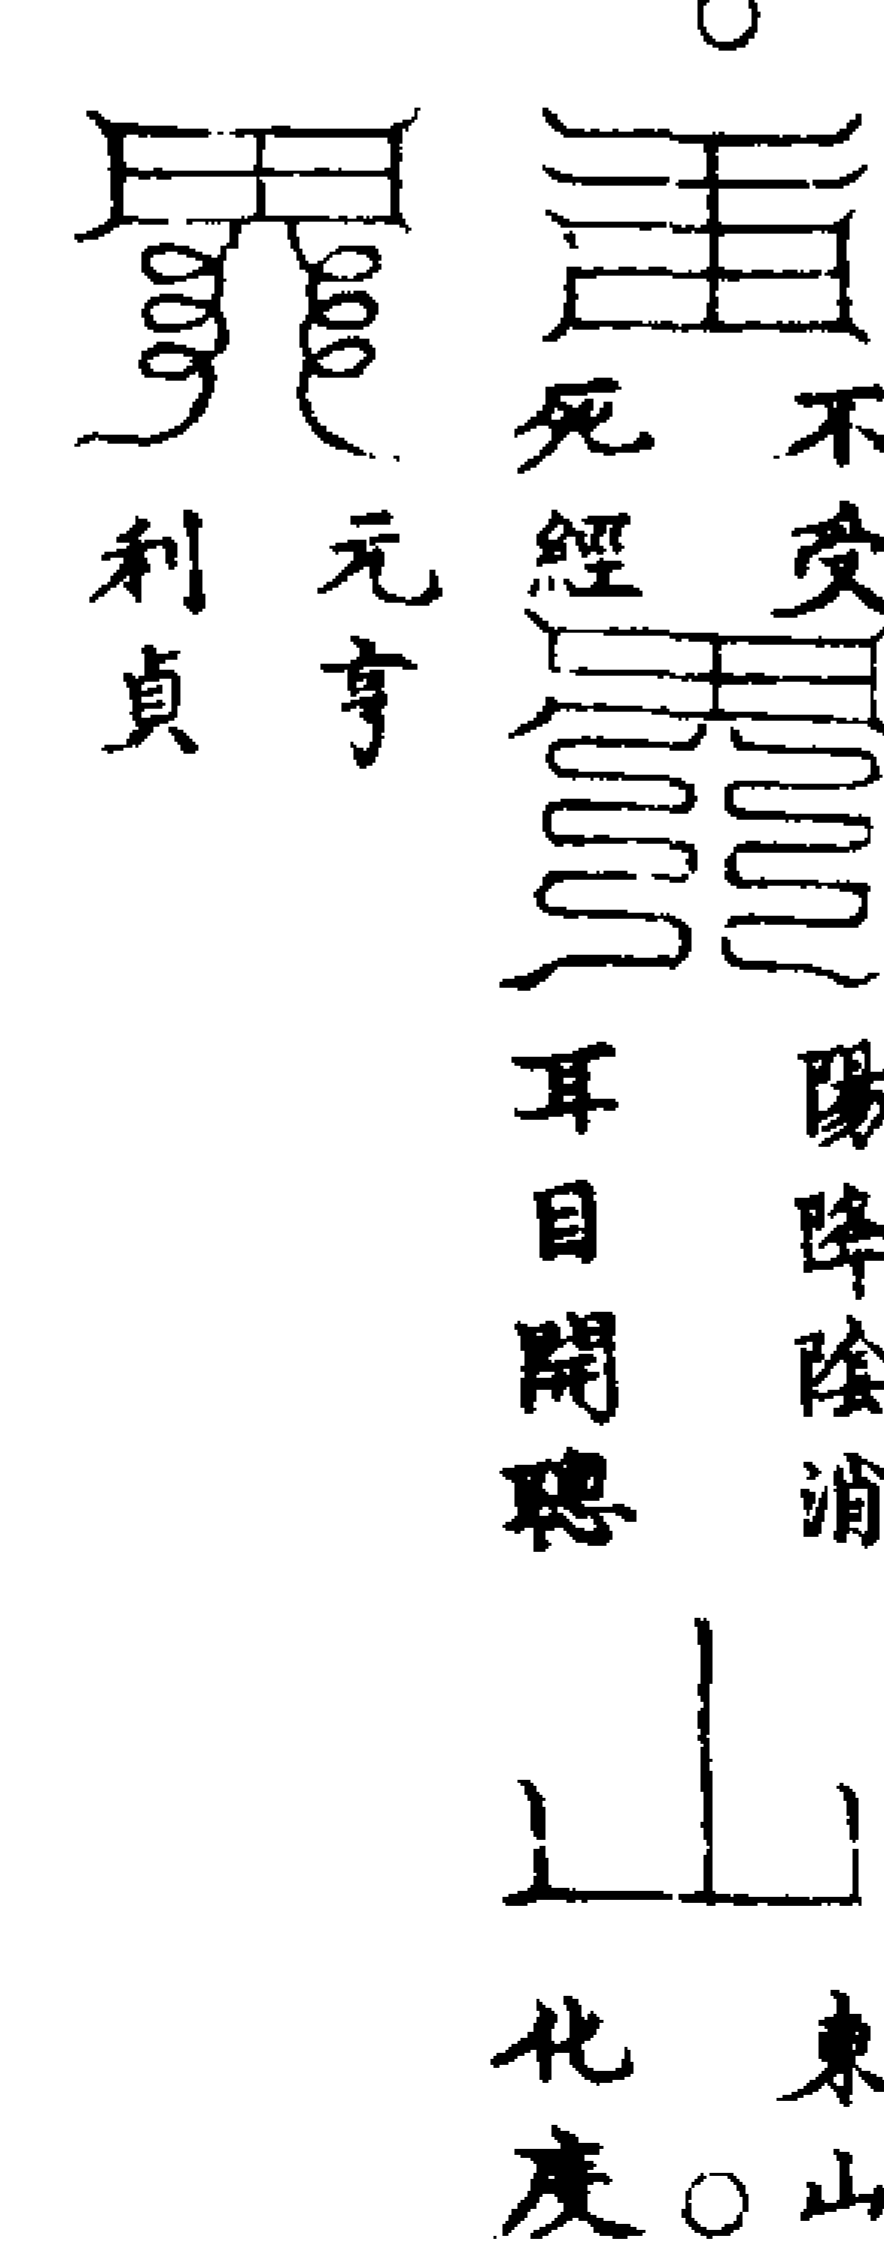 不受
死經
陽降陰消
耳目開聰
東山
化度
元亨
利貞